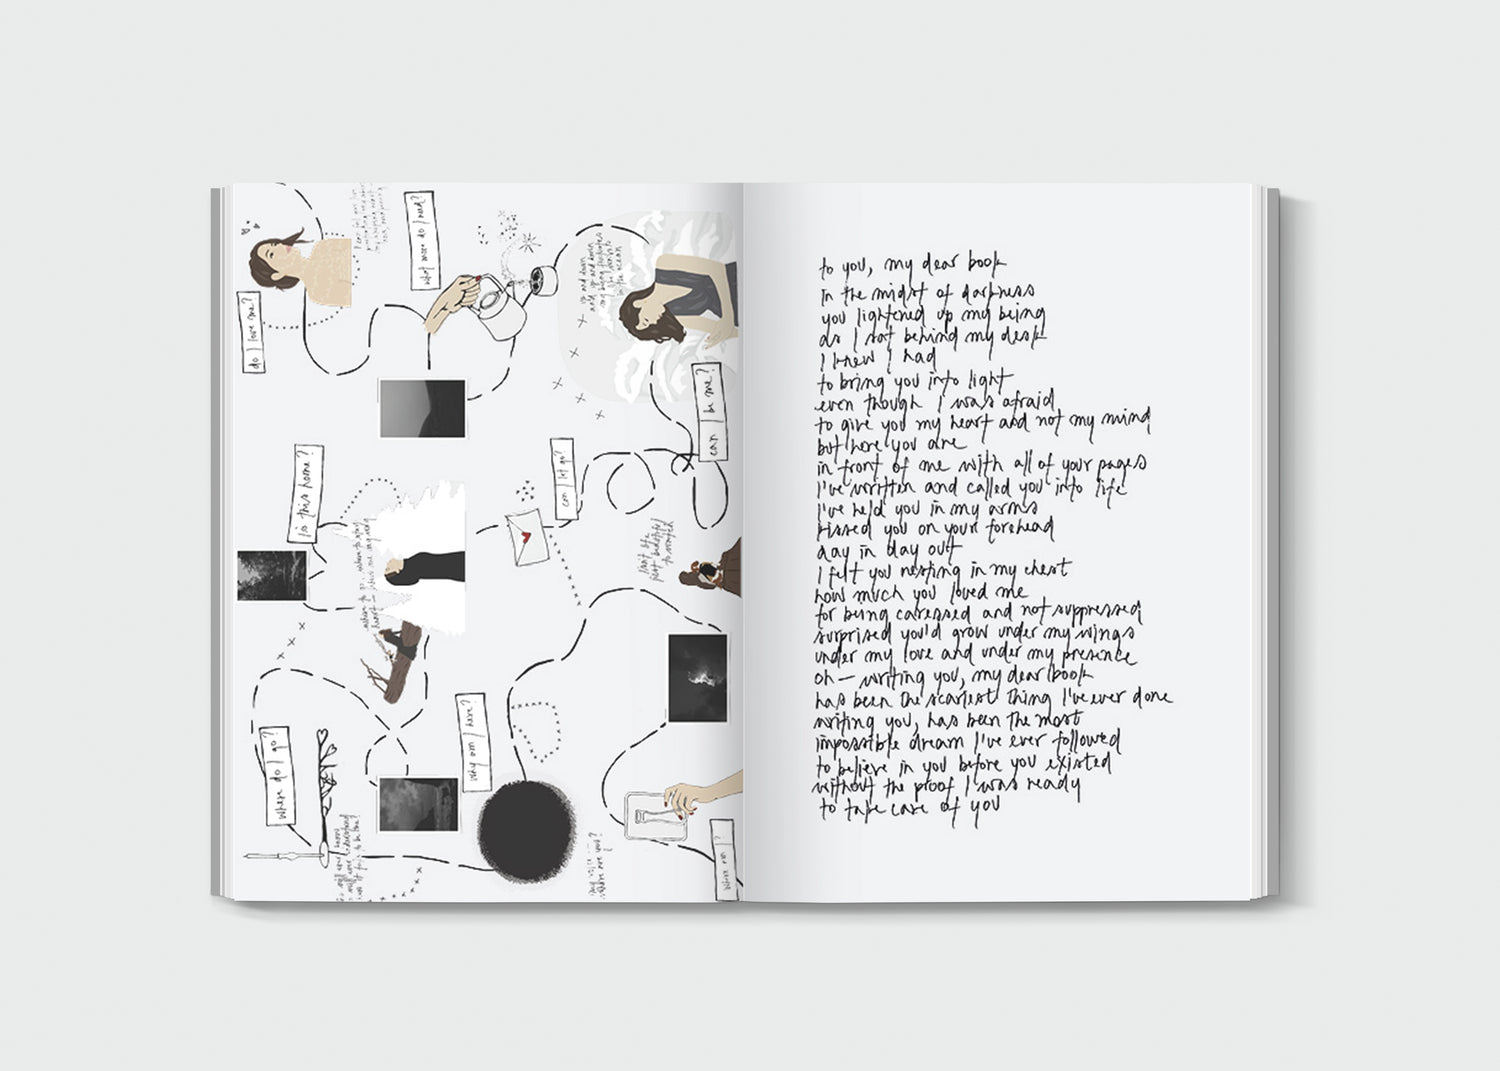 do I love me?
what more do I need?
up and down
and up and down
can I be me?
is this home?
can I let go?
where do I go?
why am I here?
where are you?
where am I?
to you, my dear book
in the midst of darkness
you lightened up my being
as I sat behind my desk
I knew I had
to bring you into light
even though I was afraid
to give you my heart and not my mind
but here you are
in front of me with all of your pages
I've written and called you into life
I've held you in my arms
kissed you on your forehead
day in day out
I felt you nesting in my chest
how much you loved me
for being caressed and not suppressed
surprised you'd grow under my wings
under my love and under my presence
oh — writing you, my dear book
has been the scariest thing I've ever done
writing you, has been the most
impossible dream I've ever followed
to believe in you before you existed
without the proof I was ready
to take care of you